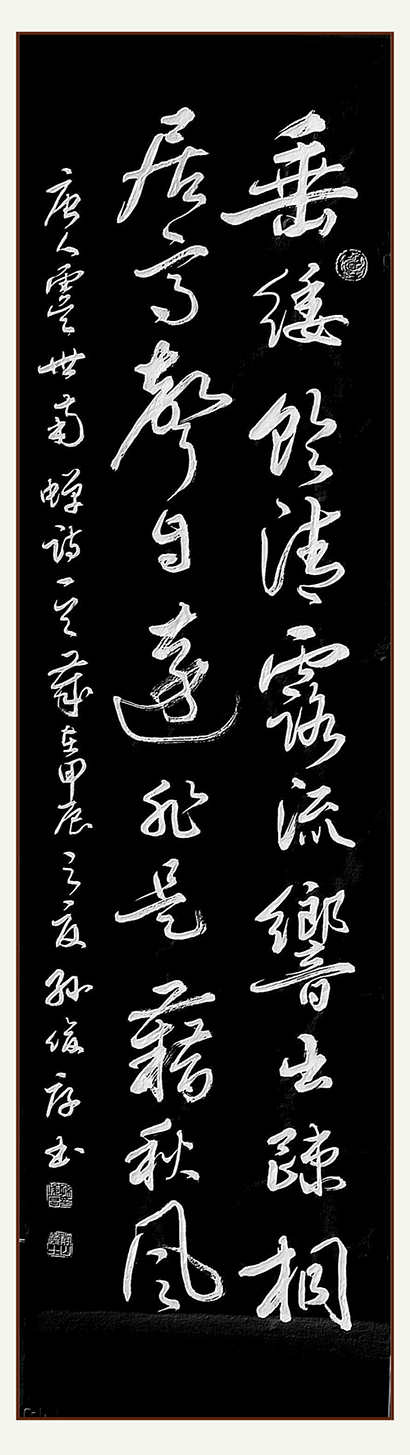 垂緌飲清露流響出疎桐
居高聲自遠非是藉秋風
唐人虞世南蟬詩一首歲在甲辰之夏孫俊